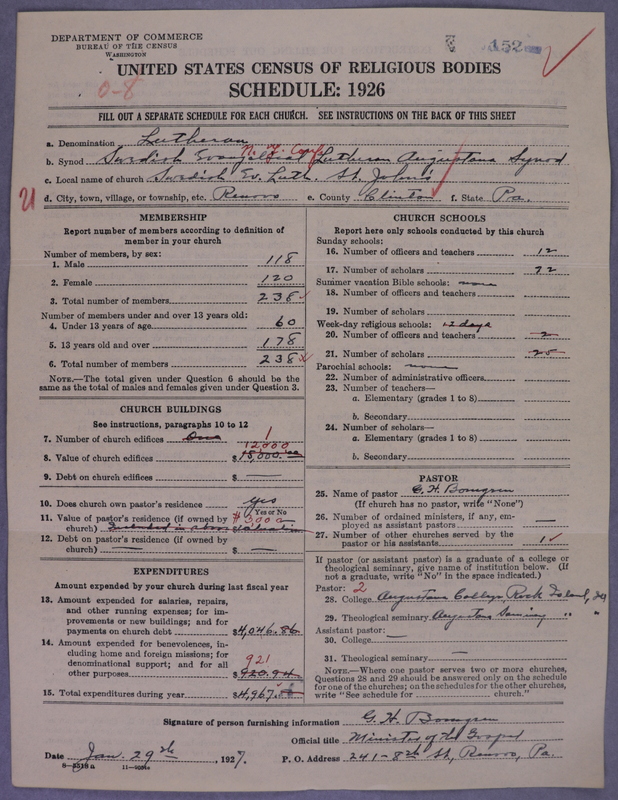 DEPARTMENT OF COMMERCE
BUREAU OF THE CENSUS
WASHINGTON
152
UNITED STATES CENSUS OF RELIGIOUS BODIES
0-8
SCHEDULE: 1926
FILL OUT A SEPARATE SCHEDULE FOR EACH CHURCH. SEE INSTRUCTIONS ON THE BACK OF THIS SHEET
a. Denomination Lutheran
N. Y. Conf.
b. Synod Swedish Evangelical Lutheran Augustana Synod
c. Local name of church Swedish Ev. Luth. St. John's
d. City, town, village, or township, etc. Renovo e. County Clinton f. State Pa.
MEMBERSHIP
Report number of members according to definition of
member in your church
Number of members, by sex:
1. Male 118
2. Female 120
3. Total number of members 238
Number of members under and over 13 years old:
4. Under 13 years of age 60
5. 13 years old and over 178
6. Total number of members 238
NOTE.—The total given under Question 6 should be
same as the total of males and females given under Question 3.
CHURCH BUILDINGS
See instructions, paragraphs 10 to 12
7. Number of church edifices One 1
12000
8. Value of church edifices $15,000.00
9. Debt on church edifices $
10. Does church own pastor's residence Yes
Yes or No
11. Value of pastor's residence (if owned by $3000
church) Included in above valuation
12. Debt on pastor's residence (if owned by
church) — $ —
EXPENDITURES
Amount expended by your church during last fiscal year
13. Amount expended for salaries, repairs,
and other running expenses; for im-
provements or new buildings; and for
payments on church debt $4,046.86
14. Amount expended for benevolences, in-
cluding home and foreign missions; for
denominational support; and for all 921
other purposes $920.94
15. Total expenditures during year $4,967.
CHURCH SCHOOLS
Report here only schools conducted by this church
Sunday schools:
16. Number of officers and teachers 12
17. Number of scholars 72
Summer vacation Bible schools: none
18. Number of officers and teachers
19. Number of scholars
Week-day religious schools: 12 days
20. Number of officers and teachers 2
21. Number of scholars 25
Parochial schools: none
22. Number of administrative officers
23. Number of teachers—
a. Elementary (grades 1 to 8)
b. Secondary
24. Number of scholars—
a. Elementary (grades 1 to 8)
b. Secondary
PASTOR
25. Name of pastor G. H. Bomgren
(If church has no pastor, write "None")
26. Number of ordained ministers, if any, em-
ployed as assistant pastors —
27. Number of other churches served by the
pastor or his assistants 1
If pastor (or assistant pastor) is a graduate of a college or
theological seminary, give name of institution below. (If
not a graduate, write "No" in the space indicated.)
Pastor: 2
28. College Augustana College Rock Island, Ill
29. Theological seminary Augustana Seminary " "
Assistant pastor:
30. College —
31. Theological seminary —
NOTE.—Where one pastor serves two or more churches,
Questions 28 and 29 should be answered only on the schedule
for one of the churches; on the schedules for the other churches,
write "See schedule for church."
Signature of person furnishing information G. H. Bomgren
Official title Minister of the Gospel
Date Jan. 29th, 1927. P. O. Address 241-8th St, Renovo, Pa.